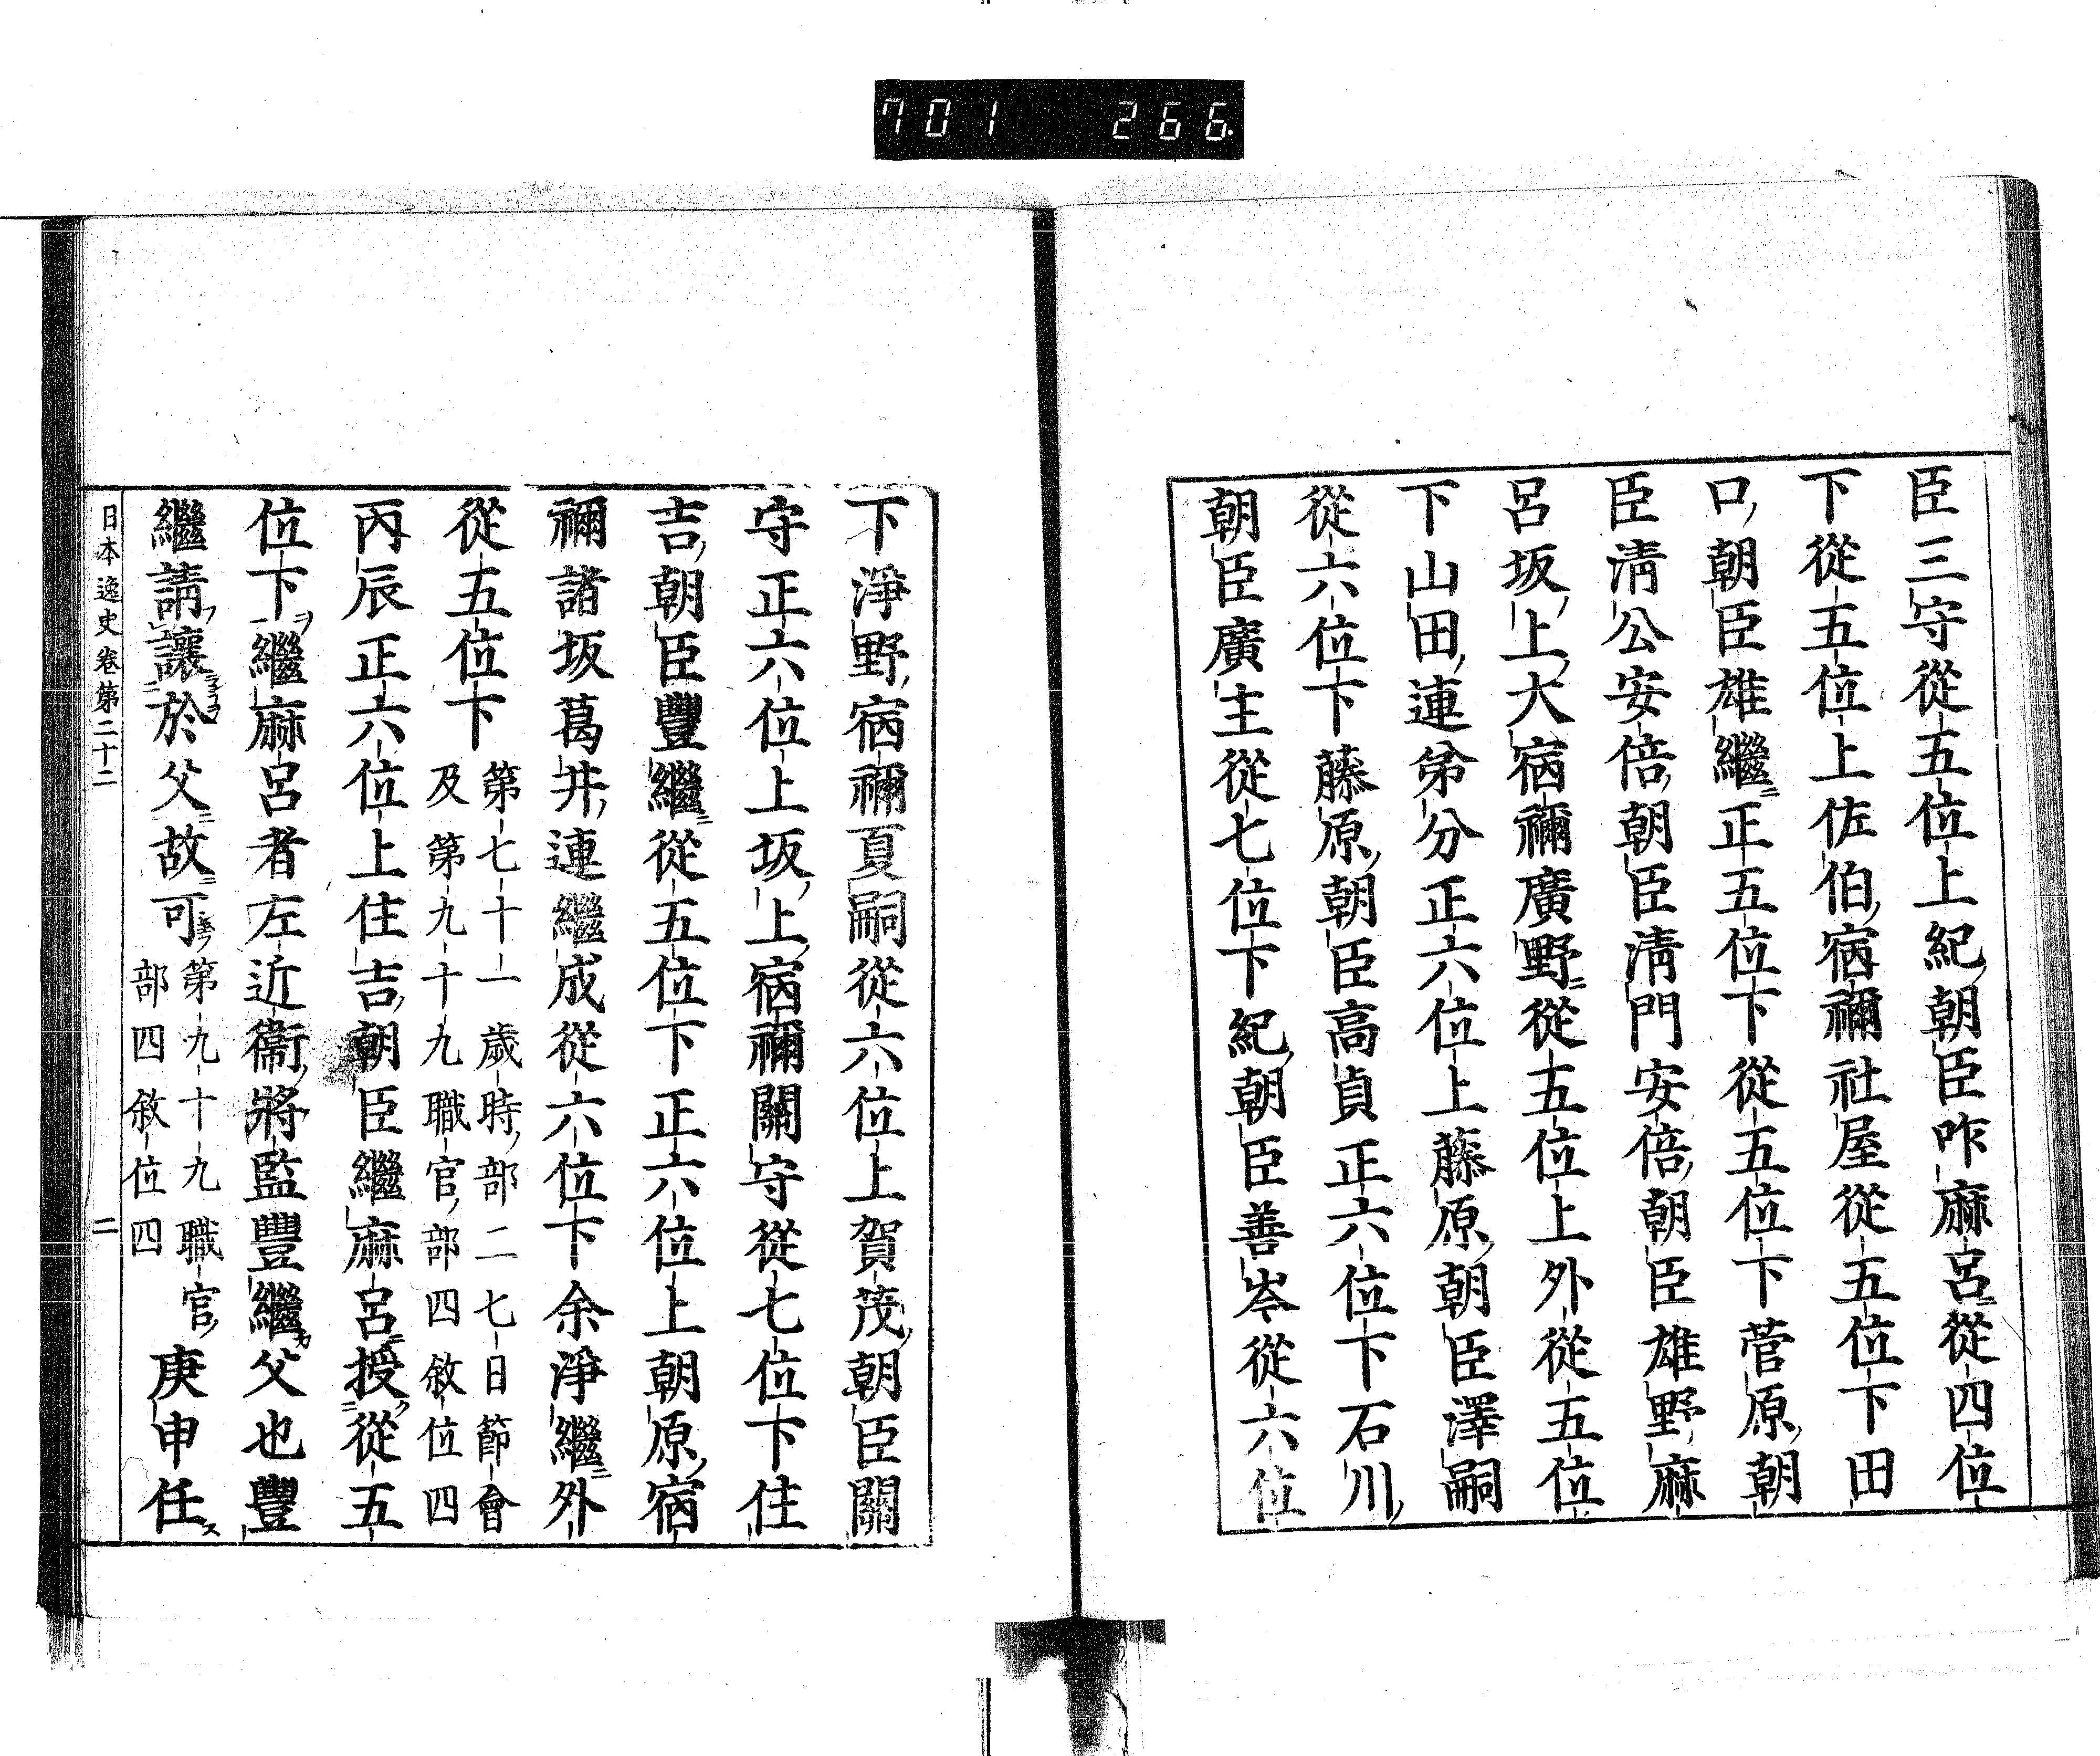 701 266
臣三守從五位上紀朝臣咋麻呂從四位
下從五位上佐伯宿禰社屋從五位下田
口朝臣雄繼正五位下從五位下菅原朝
臣淸公安倍朝臣淸門安倍朝臣雄野麻
呂坂上大宿禰廣野從五位上外從五位
下山田連弟分正六位上藤原朝臣澤嗣
從六位下藤原朝臣高貞正六位下石川
朝臣廣主從七位下紀朝臣善岑從六位
下淨野宿禰夏嗣從六位上賀茂朝臣關
守正六位上坂上宿禰關守從七位下住
吉朝臣豐繼從五位下正六位上朝原宿
禰諸坂葛井連繼成從六位下余淨繼外
從五位下第七十一歲時部二七日節會
及第九十九職官部四敘位四
丙辰正六位上住吉朝臣繼麻呂授從五
位下繼麻呂者左近衞將監豐繼父也豐
繼請讓於父故可第九十九職官
部四敘位四庚申任
日本逸史卷第二十二 二